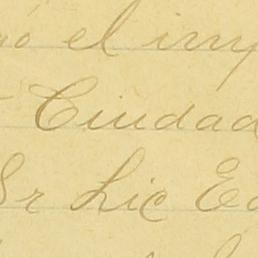 el imp
Ciudad
Sr Lic Ed